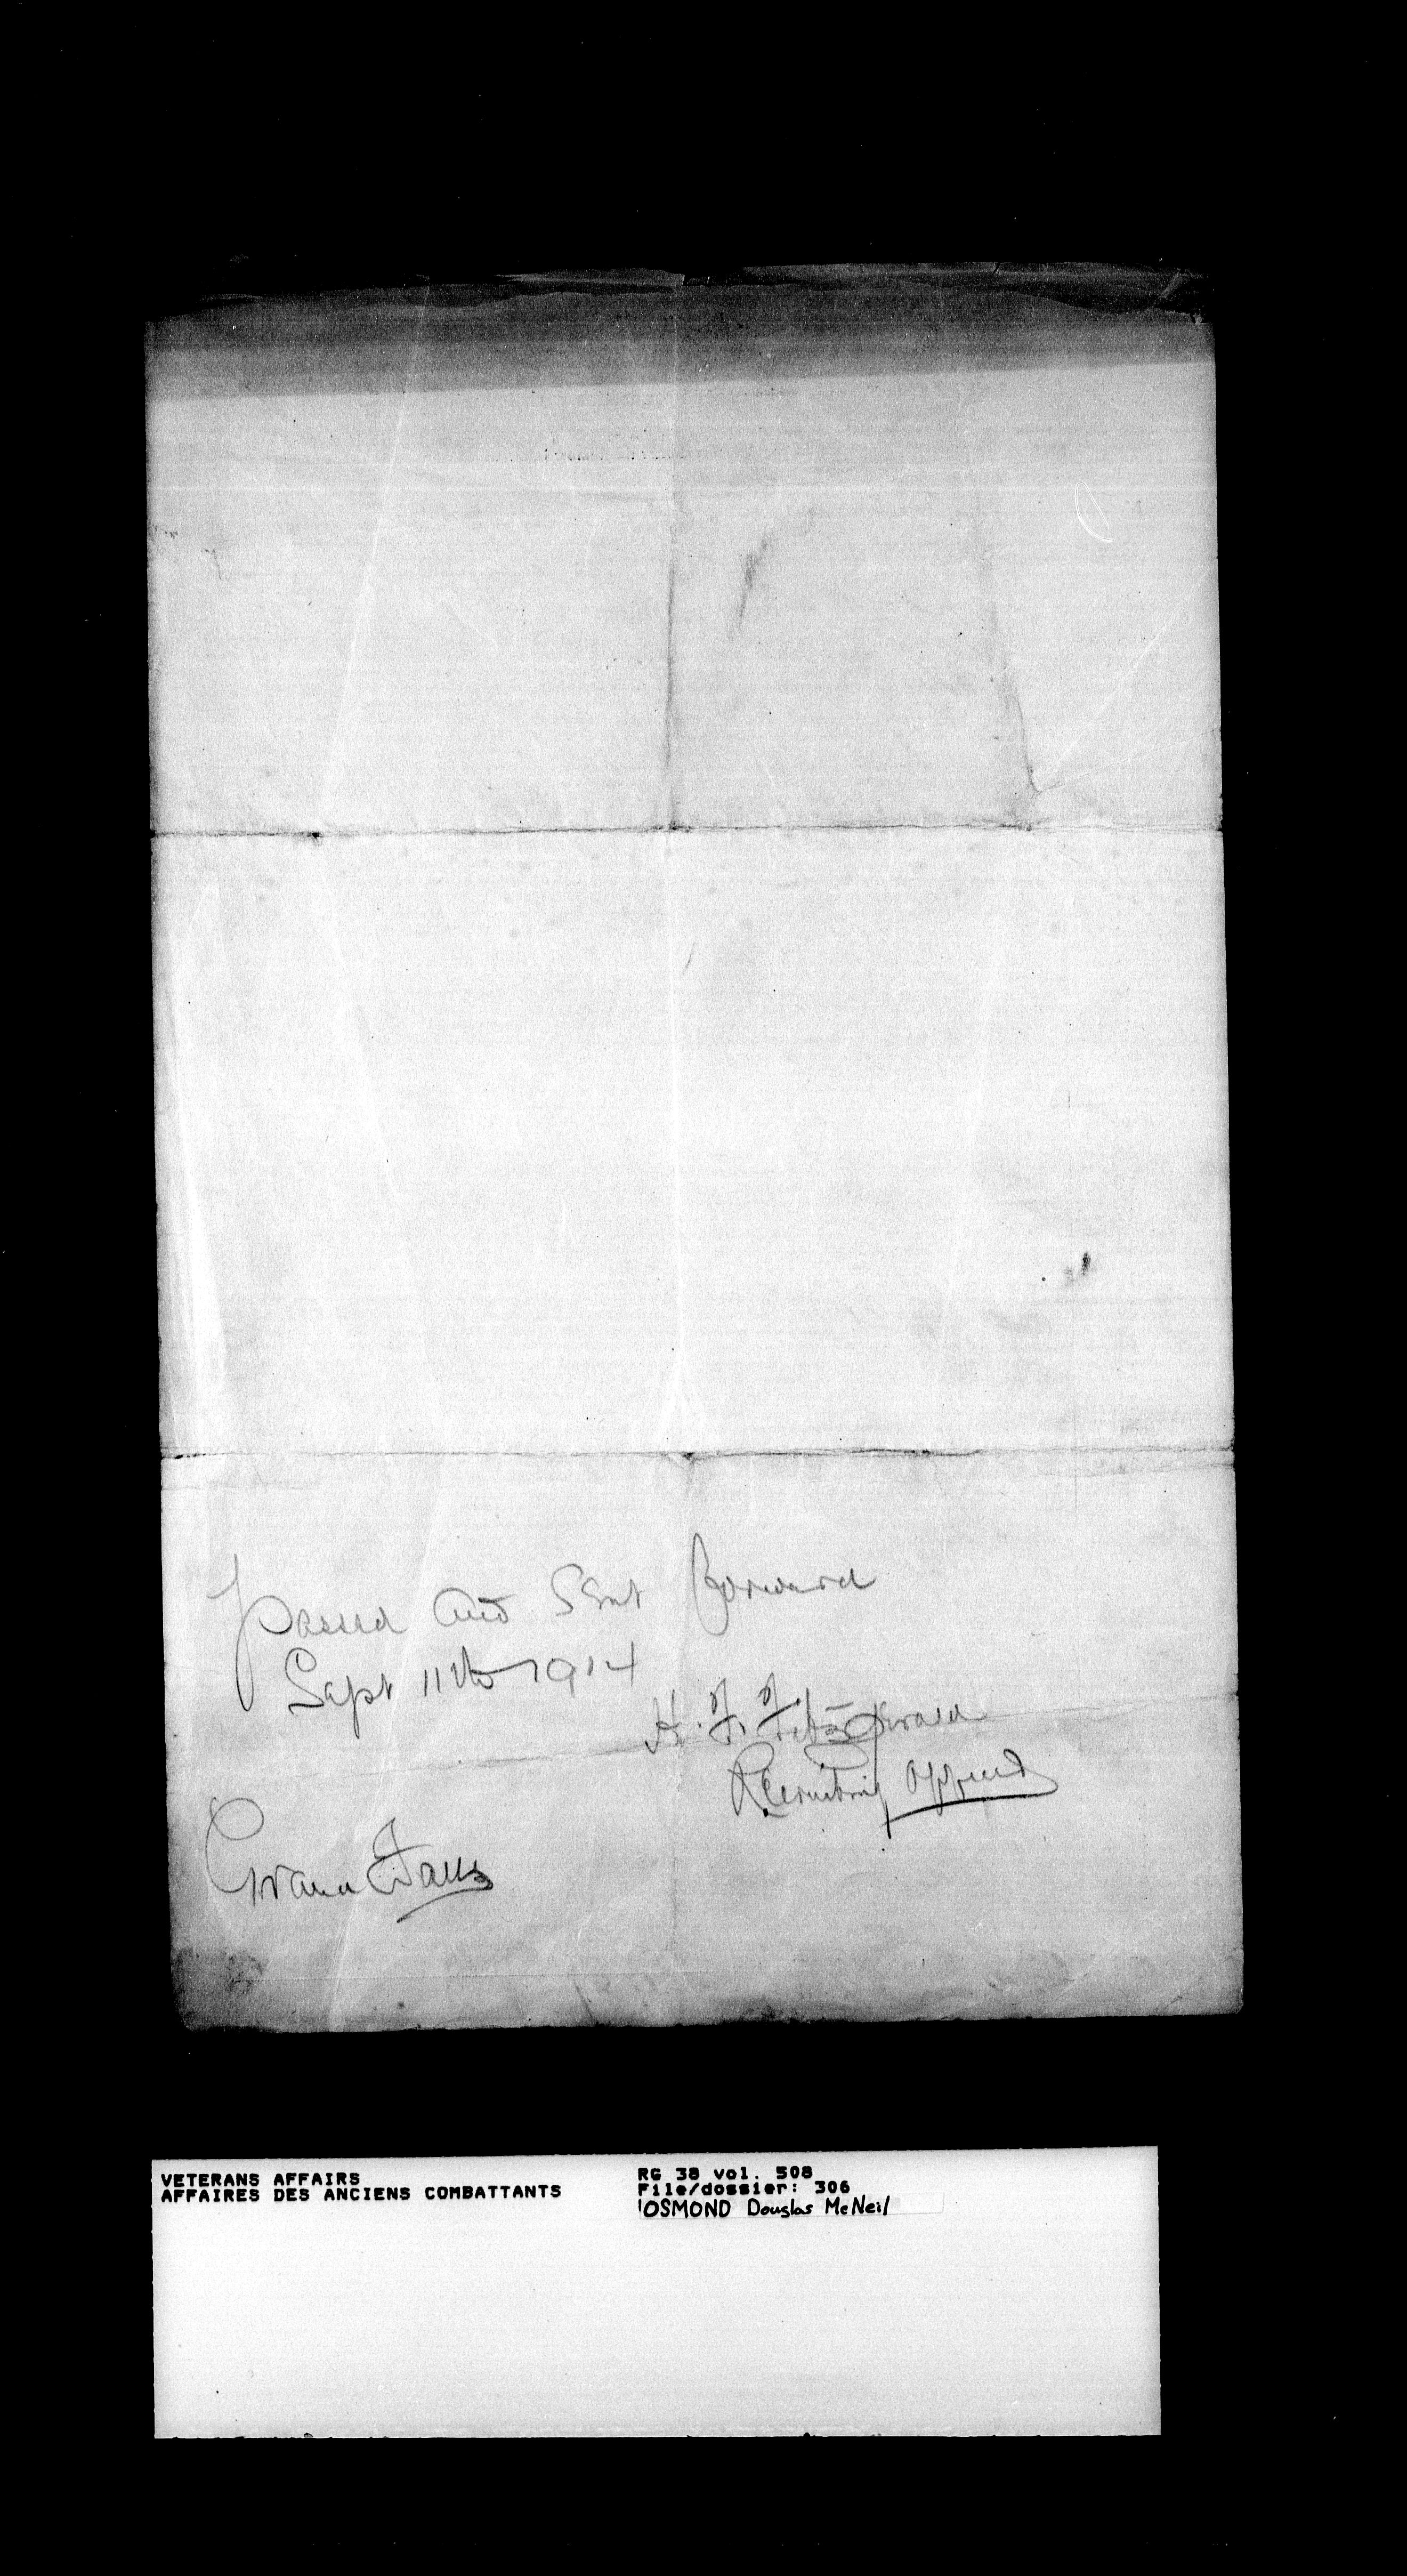 Passed and Sent forward
Sept 11th 1914
H. F. FitzGerald
Recruiting Officer
Grand Falls
VETERANS AFFAIRS
AFFAIRES DES ANCIENS COMBATTANTS
RG 38 vol. 508
File/dossier: 306
OSMOND Douglas McNeil